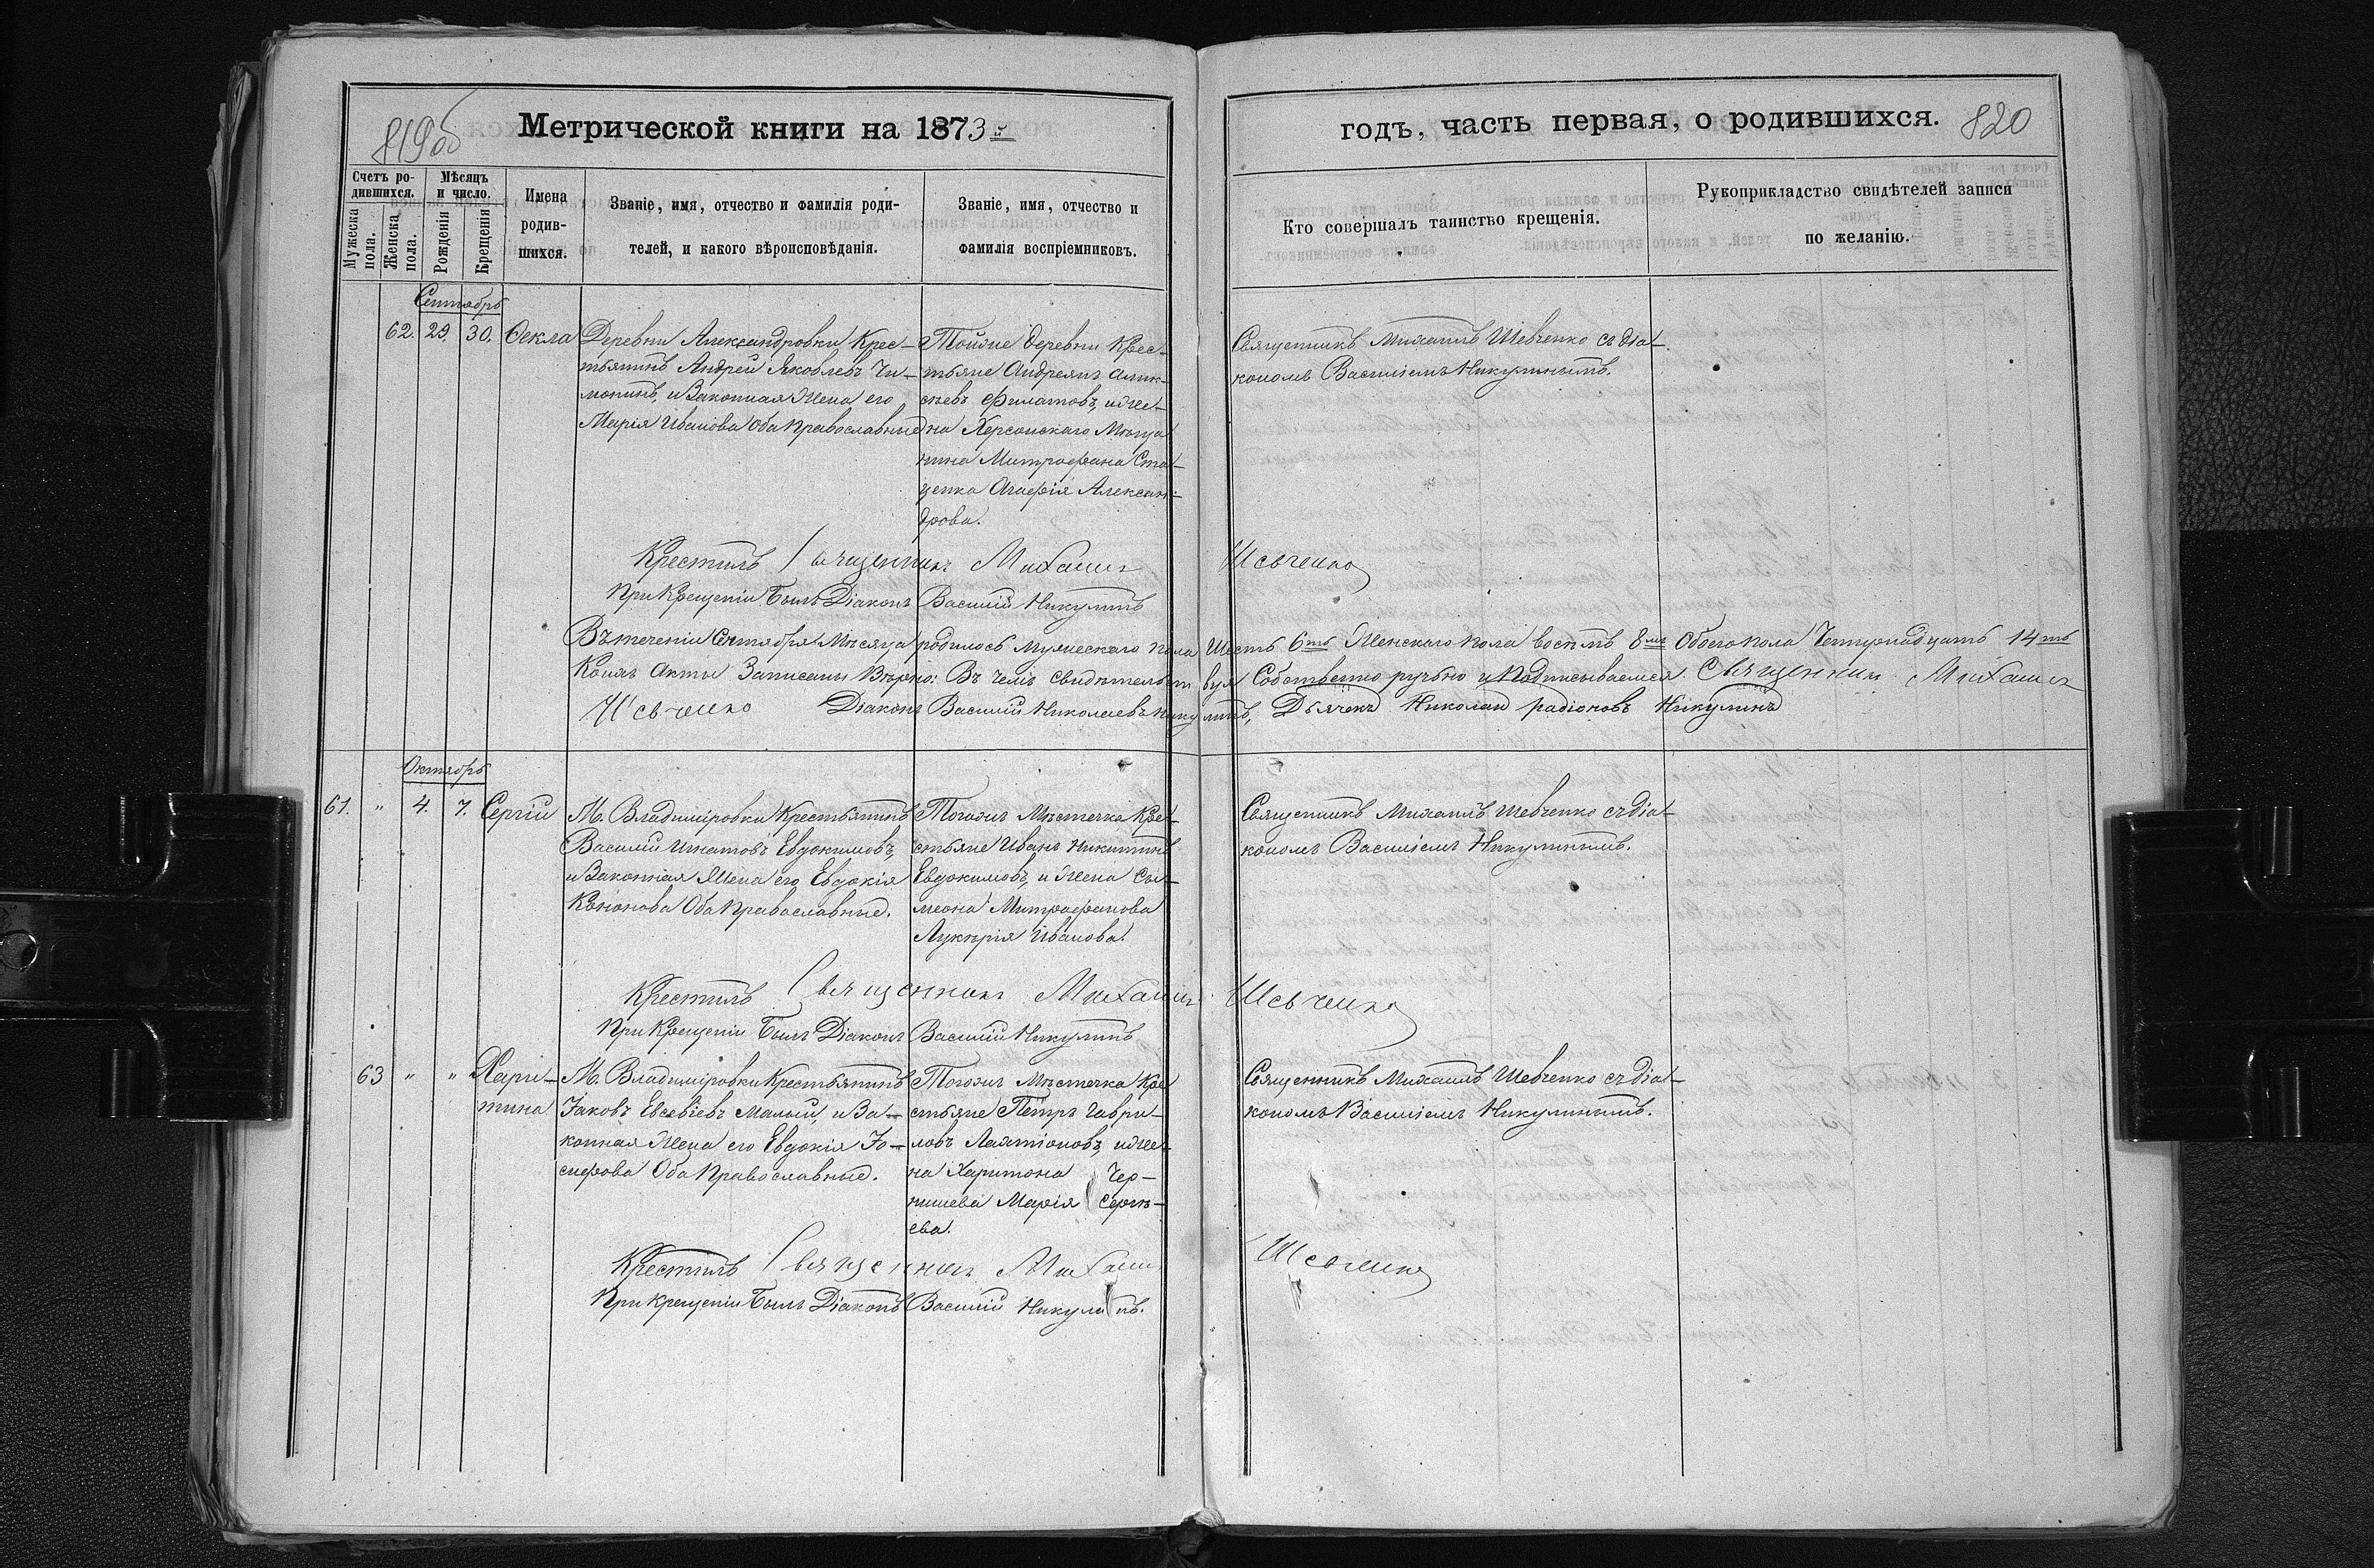 819об
Метрической книги на 1873й
годъ, часть первая, о родившихся.
820
Счетъ родившихся.
Мѣсяцъ и число.
Мужеска пола.
Женска пола.
Рожденія
Крещенія
Имена родившихся.
Званіе, имя, отчество и фамилія роди-
телей, и какого вѣроисповѣданія.
Званіе, имя, отчество и
фамилія воспріемниковъ.
Кто совершалъ таинство крещенія.
Рукоприкладство свидѣтелей записи
по желанію.
Сентябрь
62. 29. 30. Ѳекла
Деревни Александровки Крес-
тьянинъ Андрей Яковлевъ Чи-
монинъ, и Законная Жена его
Марія Иванова Оба Православные
Тойже деревни Крес-
тьяне Андреянъ Алек-
сѣевъ Филатовъ, и же-
на Херсонскаго Мѣща
нина Митрофана Ста-
ценка Агафія Алексан-
дрова.
Священникъ Михаилъ Шевченко съ діа-
кономъ Василіемъ Никулинымъ.
Крестилъ Священникъ Михаилъ Шевченко
При Крещеніи Былъ Діаконъ Василій Никулинъ
Въ теченіи Сентября Мѣсяца родилось Мужескаго пола Шесть 6ть Женскаго пола восѣмъ 8мъ Обоего пола Четырнадцать 14ть
Коихъ Акты Записаны Вѣрно: Въ чемъ свидѣтельствуя Собственно ручьно и Подписываемся. Священникъ Михаилъ
Шевченко Діаконъ Василій Николаевъ Никулинъ, Дьячекъ Николай радіоновъ Никулинъ
Октябрь
61. " 4. 7. Сергій
М. Владиміровки Крестьянинъ
Василій Игнатовъ Евдокимовъ,
и Законная Жена его Евдокія
Конѡнова Оба Православные.
Тогожъ Мѣстечка Кре-
стьяне Иванъ Никитинъ
Евдокимовъ, и Жена Си-
меона Митрофанова
Лукѣрія Иванова.
Священникъ Михаилъ Шевченко съ діа-
кономъ Василіемъ Никулинымъ.
Крестилъ Священникъ Михаилъ Шевченко
При Крещеніи Былъ Діаконъ Василій Никулинъ
63 " " Хари-
тина
М. Владиміровки Крестьянинъ
Іаковъ Евсевіевъ Малый, и За-
конная Жена его Евдокія Іо-
сифова Оба Православные.
Тогожъ Мѣстечка Кре
стьяне Петръ Гаври-
ловъ и же-
на Харитона Чер-
нишева Марія Сергѣ-
ева.
Священникъ Михаилъ Шевченко съ діа-
кономъ Василіемъ Никулинымъ.
Крестилъ Священникъ Михаилъ Шевченко
При Крещеніи Былъ Діаконъ Василій Никулинъ.